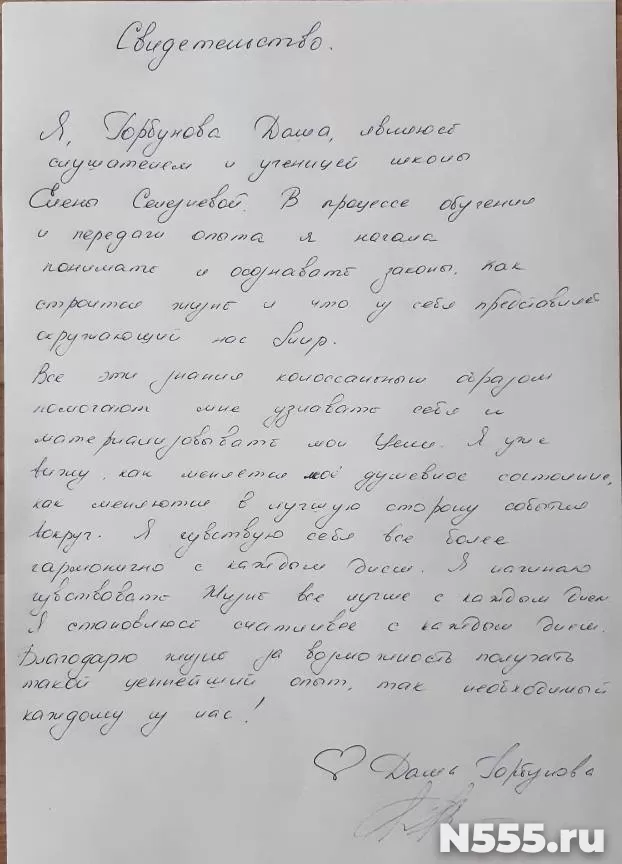 Свидетельство.
Я, Горбунова Даша, являюсь
слушателем и ученицей школы
Елены Селезневой. В процессе обучения
и передачи опыта я начала
понимать и осознавать законы, как
строится жизнь и что из себя представляет
окружающий нас Мир.
Все эти знания колоссальным образом
помогают мне узнавать себя и
материализовывать мои Цели. Я уже
вижу, как меняется моё душевное состояние,
как меняются в лучшую сторону события
вокруг. Я чувствую себя все более
гармонично с каждым днем. Я начинаю
чувствовать Жизнь все лучше с каждым днем
Я становлюсь счастливее с каждым днем.
Благодарю жизнь за возможность получать
такой ценнейший опыт, так необходимый
каждому из нас!
♡ Даша Горбунова
N555.ru